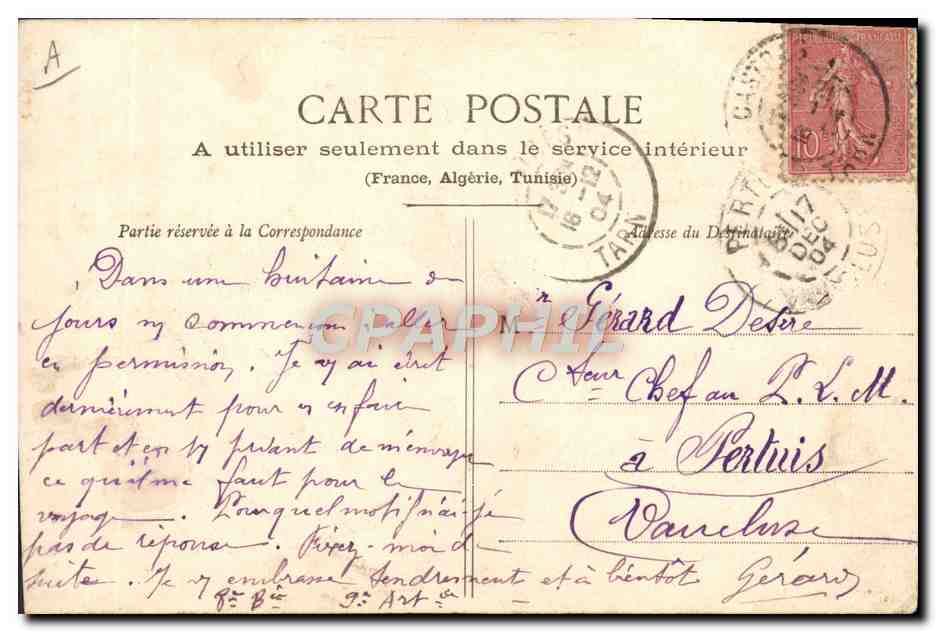 A
CARTE POSTALE
A utiliser seulement dans le service intérieur
(France, Algérie, Tunisie)
Partie réservée à la Correspondance
Adresse du Destinataire
Dans une huitaine de
jours ns commencerons à aller
en permission. Je vs ai écrit
dernièrement pour vs en faire
part et en vs priant de m'envoyer
ce qu'il me faut pour le
voyage. Pour quel motif n'ai-je
pas de réponse. Fixez-moi de
suite. Je vs embrasse tendrement et à bientôt Gérard
8e Bie 9e Art ie
Mr Gérard Desire
Cteur Chef au P. L. M.
à Pertuis
Vaucluse
10
17 16 -12 04
TARN
PERTUIS
17 DEC 04
VAUCLUSE
CPARAMA